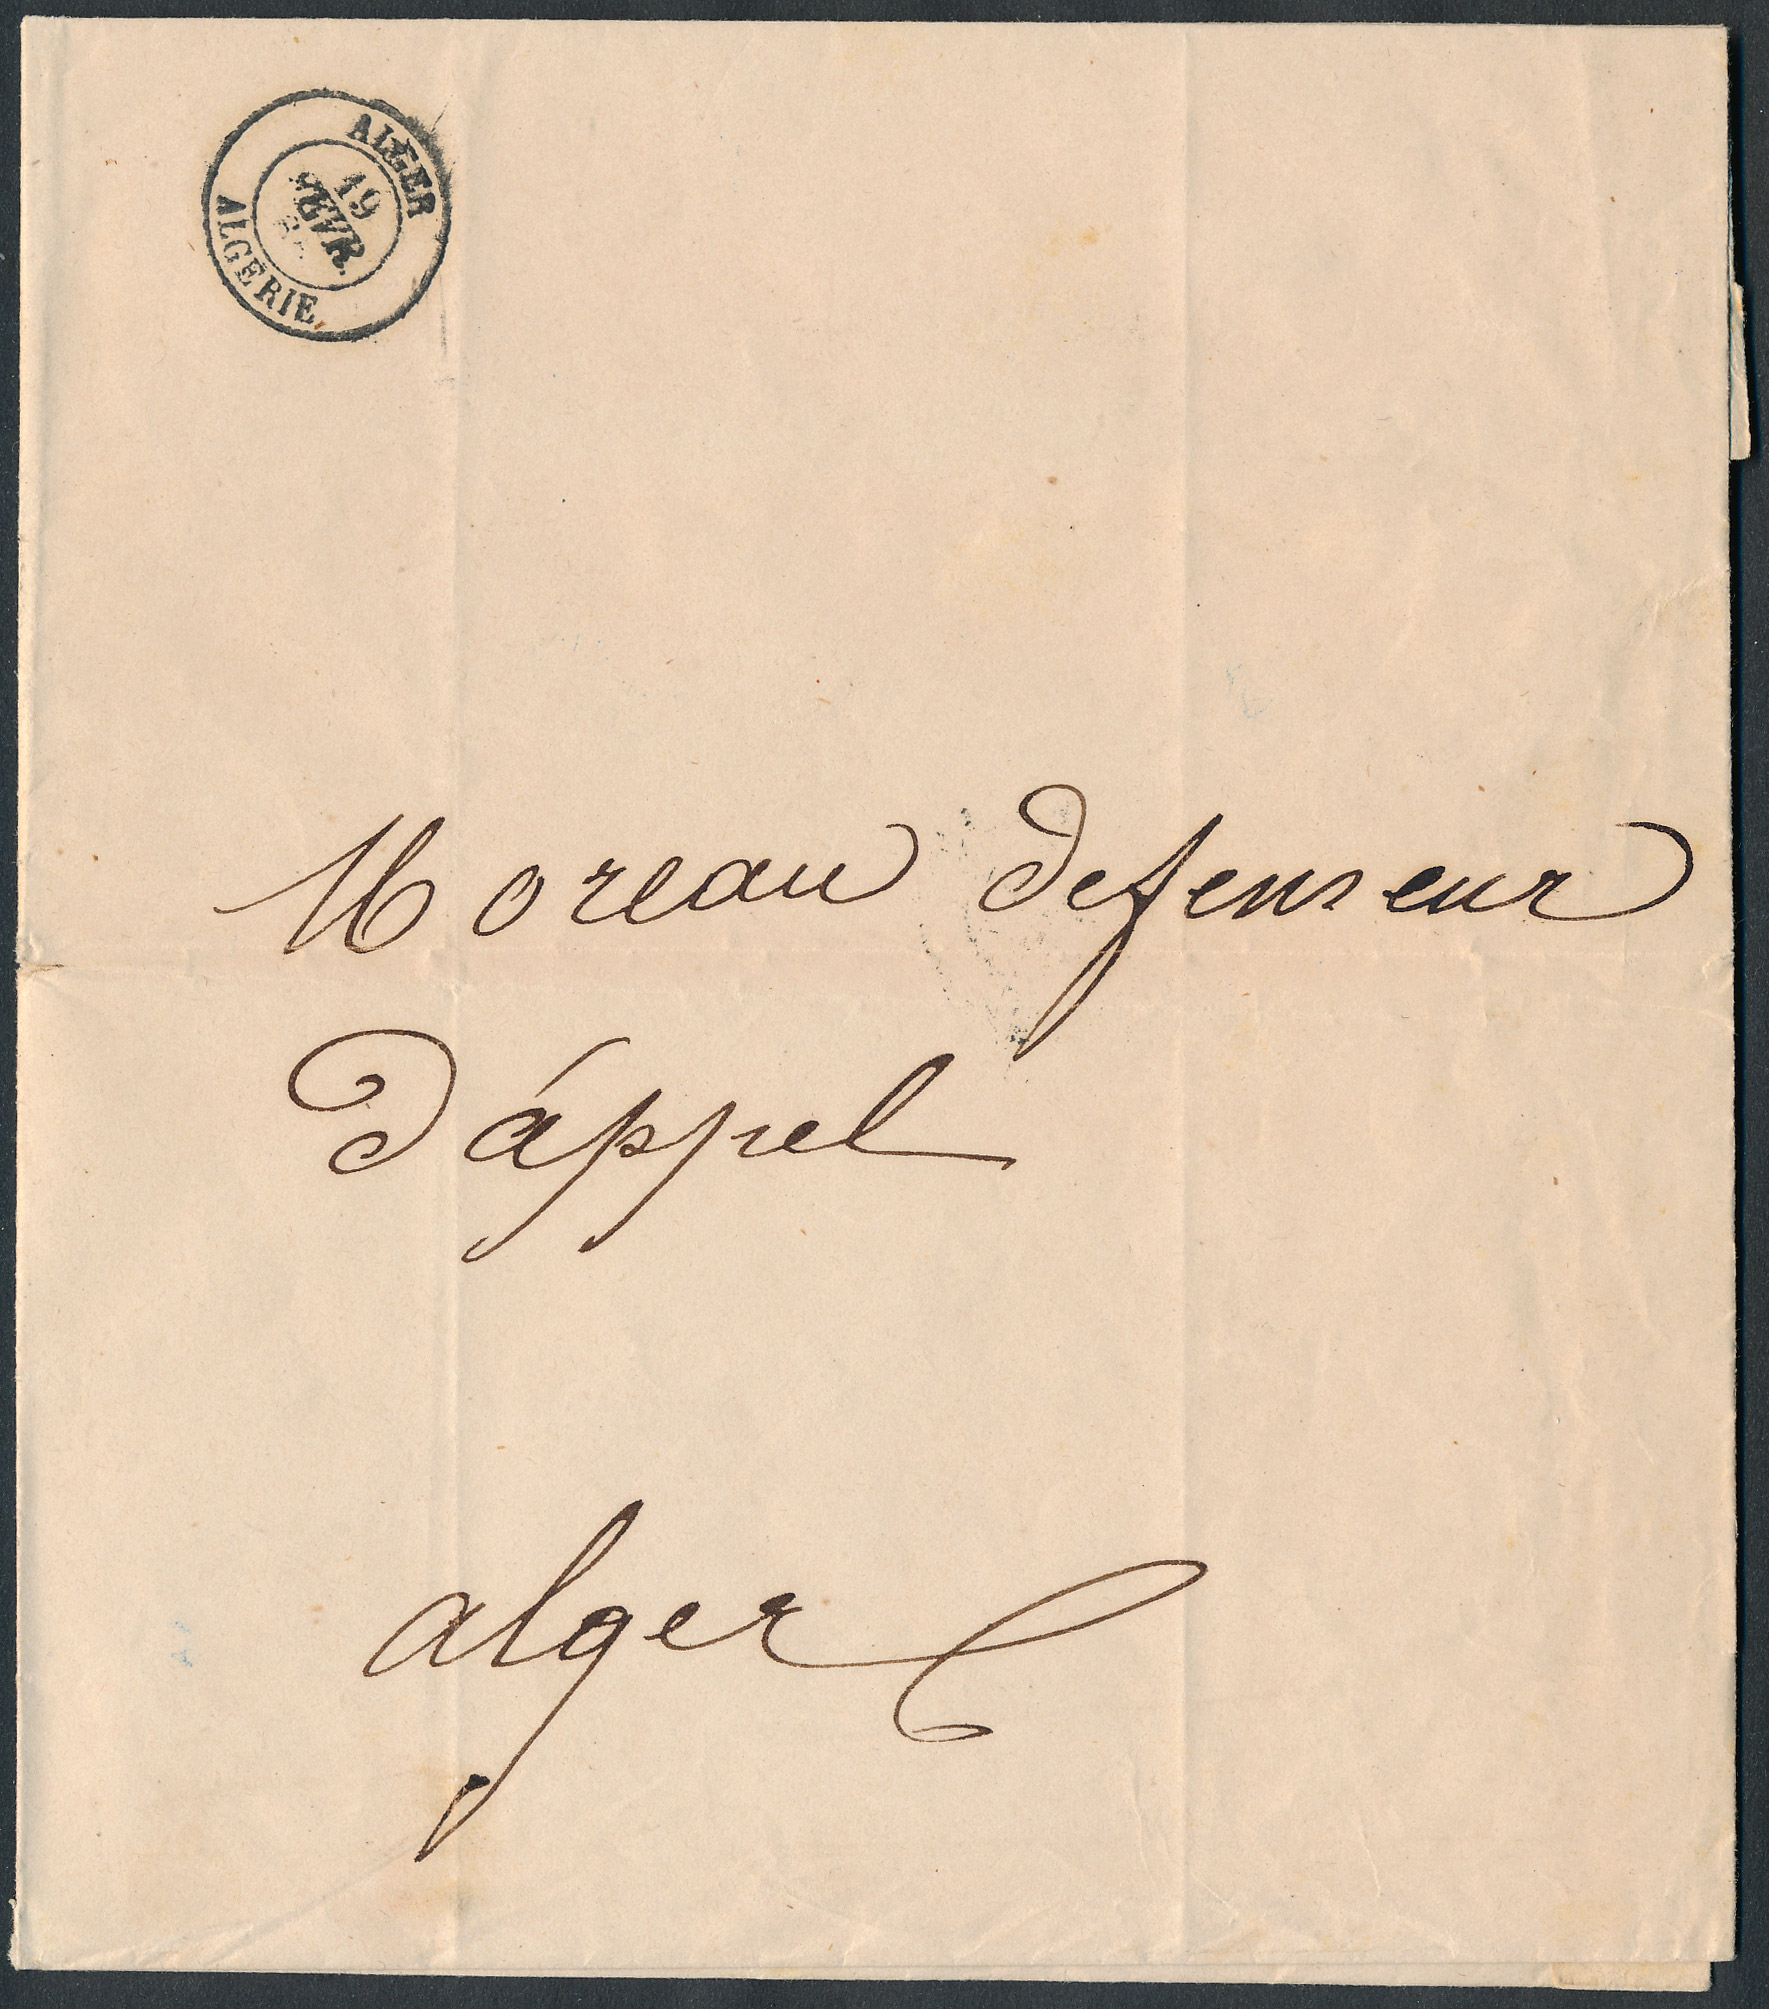 ALGER
19
FEVR.
ALGERIE
Moreau defenseur
d'appel
alger